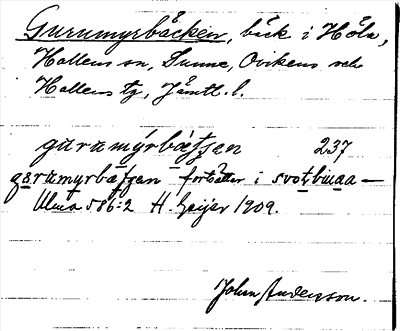 Gurumyrbäcken, bäck i Höla,
Hallens sn, Sunne, Ovikens och
Hallens tg, Jämtl. l.
gurumýrbäƭʃen 237
gurumyrbäƭʃen fortsätter i svotbuaa —
Ulma 586:2 H. Geijer 1909.
John Andersson.